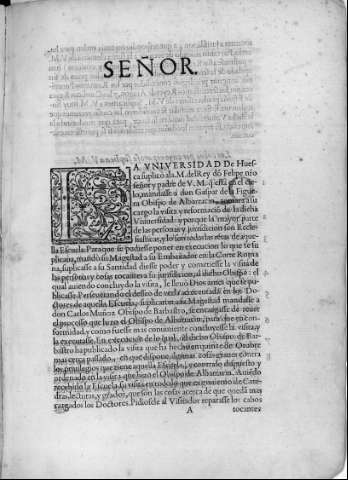 SEÑOR.
LA VNIVERSIDAD De Hues
ca suplico a la M. del Rey dō Felipe nro
señor y padre de V. M. q̄ está en el cie
lo, mandasse a don Gaspar de Figue
ra Obispo de Albarracin, tomara a su
cargo la visita y reformació de la dicha
Vniuersidad: y porque la mayor parte
de las personas y jurisdicion son Ecle-
siasticas, y lo son todas las rētas de aque-
lla Escuela. Paraque se pudiesse poner en execucion lo que se su
plicaua, mandò su Magestad a su Embaxador en la Corte Roma
na, suplicasse a su Santidad diesse poder y cometiesse la visita de
las personas y cosas tocantes a su jurisdicion, al dicho Obispo: el
qual auiendo concluydo la visita, se lleuó Dios antes que se pu-
blicasse. Perseuerando el desseo de verla executada en los Do-
ctores de aquella Escuela, suplicaron a su Magestad mandasse a
don Carlos Muñoz Obispo de Barbastro, se encargasse de remi
rar el processo que hizo el Obispo de Albarracin, para que en con
formidad, y como fuesse mas conueniente concluyesse la visita, y
la executasse. En execucion de lo qual, el dicho Obispo de Bar-
bastro ha publicado la visita que ha hecho en quinze de Octubre
mas cerca passado, en que dispone algunas cosas graues contra
los priuilegios que tiene aquella Escuela, y contra lo dispuesto y
ordenado en la visita que hizo el Obispo de Albarracin. Auiēdo
recebido la Escuela su visita en todo lo que es prouision de Cate
dras, lecturas, y grados, que son las cosas acerca de que queda mas
cargados los Doctores. Pidiose al Visitador reparasse los cabos
A tocantes